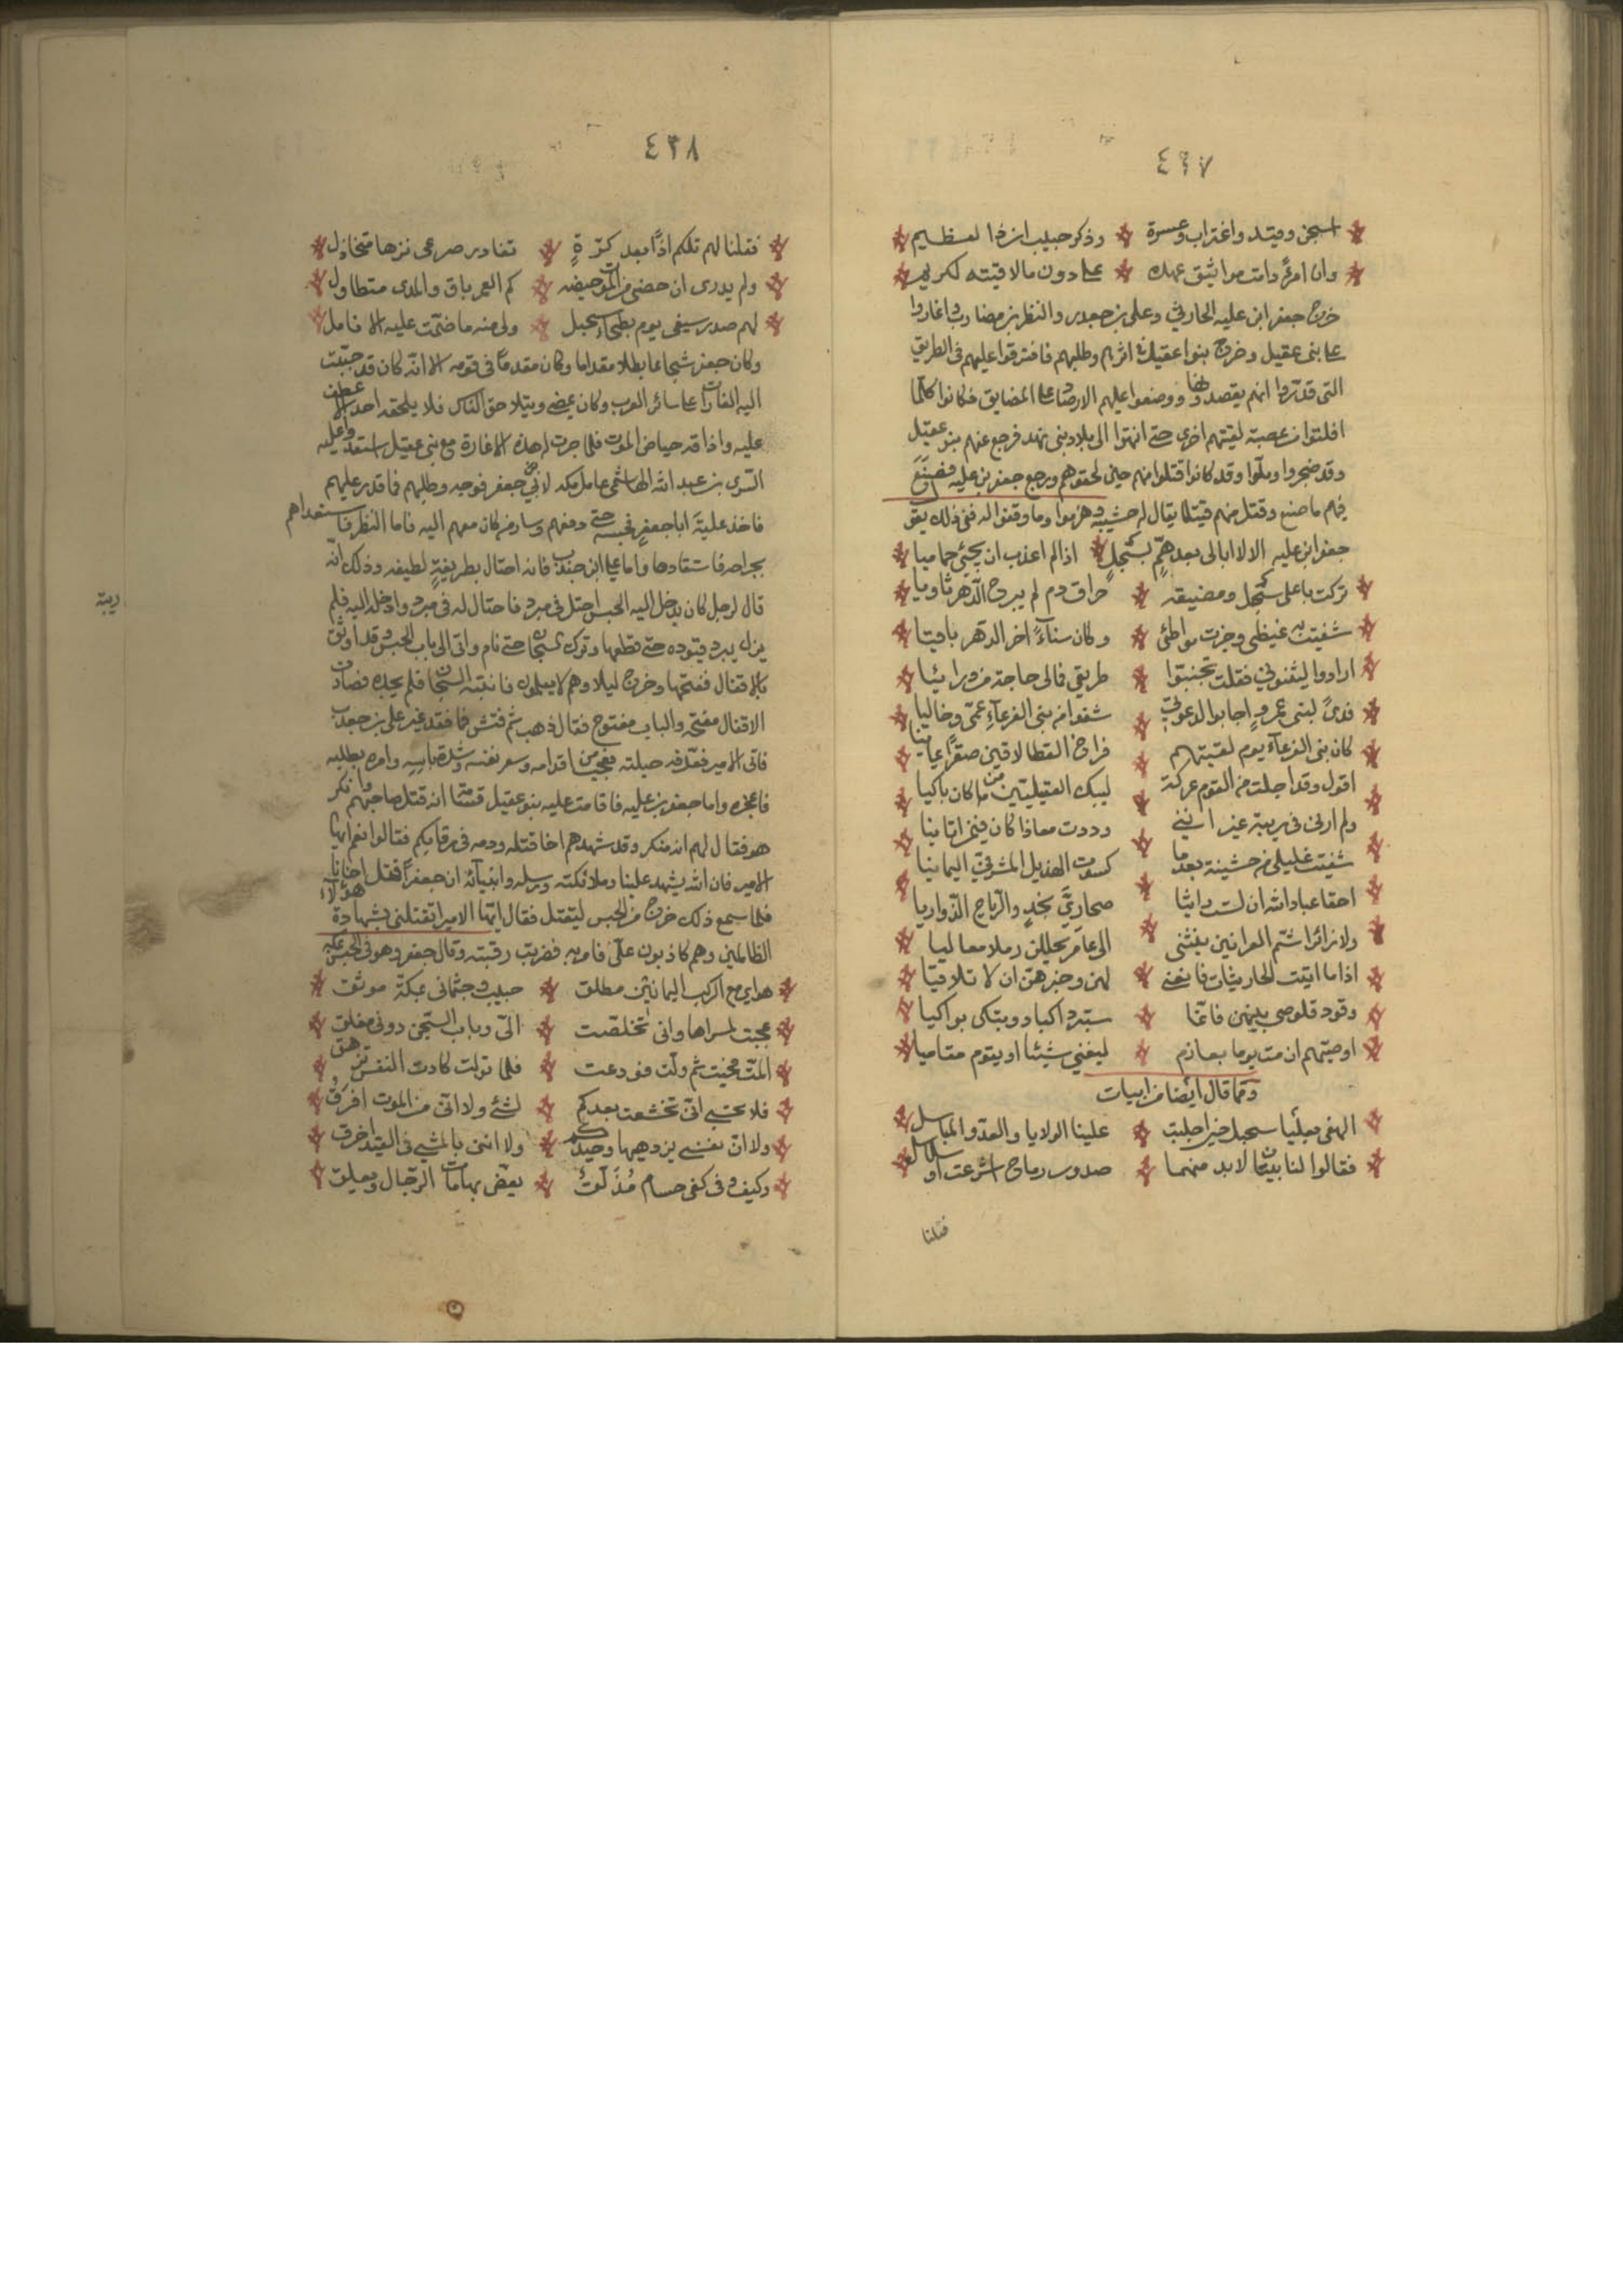 ٤٣٧
اسجن وقيد واغتراب وعسرة * وذكر حبيب ان ذا لعظيم
وان امرءً دامت مواثيق عهده * على دون ما لاقيته لكريم
خرج جعفر ابن علبه الحارثي وعلى بن جعدر والنظر بن مضارب واغاروا
على بنى عقيل وخرج بنوا عقيل اثرهم وطلبهم فافترقوا عليهم فى الطريق
التى قدروا انهم يقصدوا ووضعوا عليهم الارصاد على المضايق فكانوا كلما
افلتوا من عصبة لقيتهم اخرى حتى انتهوا الى بلاد بنى نهد فرجع عنهم بنو عقيل
وقد ضجروا وملوا وقد كانوا قتلوا منهم حين لحقوهم ورجع جعفر بن علبه فصنع
فيهم ما صنع وقتل منهم قتيلا يقال له خشيبه وهزموا وما وقفوا له ففى ذلك يقول
جعفر ابن علبه الا لا ابالى بعد هم بسحبل * اذا لم اعذب ان يجئ حماميا
تركت باعلى سحبل ومضيقه * مراق دم لم يبرح الدهر ثاويا
شفيت به غيظى وجزت مواطئى * وكان سناءً اخر الدهر باقيا
ارادوا ليثنونى فقلت تجنبوا * طريقى فمالى حاجة من ورائيا
فدىً لبنى عمرو اجابوا لدعوتى * شفوا من بنى القرعآء عمى وخاليا
كان بنى القرعآء يوم لقيتهم * فراخ القطا لاقين صقرًا يمانيا
اقول وقد اجلت من القوم عركة * ليبك العقيليين من ما كان باكيا
ولم ارلى فى ريبة غير اننى * وددت معاذا كان فيمن اتانيا
شفيت غليلى من خشينة بعد ما * كسوت الهذيل المشرفى اليمانيا
احقا عباد الله ان لست رائيا * صحارى نجد والرياح الذواريا
ولا زائرًا شم العرانين ينثنى * الى عامر يحللن رملا معاليا
اذا ما اتيت الحارثيات فانعنى * لهن وخبرهن ان لا تلاقيا
وقود قلوصى بينهن فانها * ستبرد اكبادو وتبكى بواكيا
اوصيتهم ان مت يوما بعارم * ليغنى شيئا او يقوم مقاميا
ومما قال ايضا من ابيات
الهفى بعليا سحبل حين اجلبت * علينا الولايا والعدو المباسل
فقالوا لنا بينان لابد منهما * صدور رماح اشرعت او سلاسل
فقلنا
٤٣٨
فقلنا لهم تلكم اذًا بعد كرّةٍ * تغادر صرعى نزها متخاذل
ولم يدرى ان حضى من الموت حيضه * كم العمر باق والمدى متطاول
لهم صدر سيفى يوم بطحاء سحبل * ولى منه ما ضمّت عليه الانامل
وكان جعفر شجاعا بطلا مقداما وكان مقدمًا فى قومه الا انه كان قد حببت
اليه الغارات على سائر العرب وكان يمضى ويتلاحق الناس فلا يلحقه احد الا عطف
عليه واذاقه حياض الموت فلما جرت له هذه الاغارة مع بنى عقيل استعدوا عليه
السرى بن عبد الله الهاشمى عامل مكه لابى جعفر فوجه وطلبهم فما قدر عليهم
فاخذ علبة ابا جعفر فحبسه حتى دفعهم وسار من كان معهم اليه فاما النظر فاستعداهم
بجراحه فاستقادها واما على ابن جندب فانه احتال بطريقةٍ لطيفه وذلك انه
قال لرجل كان يدخل اليه الحبس احتل فى مبرد فاحتال له فى مبرد وادخله اليه فلم
يزل يبرد قيوده حتى قطعها وترك السجان حتى نام واتى الى باب الحبس وقد اوثق
بالاقفال ففتحها وخرج ليلا وهم لا يعلمون فانتبه السجان فلم يجده فصادف
الاقفال مفتحه والباب مفتوح فقال ذهب ثم فتش فما فقد غير على بن جعدب
فاتى الامير فعرفه حيلته فعجب من اقدامه وسعر نفسه وشدة باسه وامر بطلبه
فاعجزه واما جعفر بن علبه فاقامت عليه بنو عقيل انه قتل صاحبهم وانكر
هو فقال لهم انه منكر وقد شهدهم اخا قتله ودمه فى رقابكم فقالوا نعم ايها
الامير فان الله يشهد علينا وملائكته ورسله وانبيآئه ان جعفرًا قتل اخانا
فلما سمع ذلك خرج من الحبس ليقتل فقال ايها الامير اتقتلنى بشهادة هؤلآء
الظالمين وهم كاذبون علىّ فامر به فضربت رقبته وقال جعفر وهو فى الحبس بمكه
هواى مع الركب اليمانين مطلق * حبيب وجثمانى بمكة موثق
عجبت لمسراها وانى تخلصت * الىّ وباب السجن دونى مغلق
المّت فحيت ثم ولت فودعت * فلما تولت كادت النفس تزهق
فلا تحسبى انى تخشعت بعدكم * لشئ ولا انى من الموت افرق
ولا ان نفسى يزدهيها وعيدكم * ولا اننى بالمشى فى القيد اخرق
وكيف وفى كفى حسام مُذَلّقٌ * يعض بهامات الرجال ويعلق
ريبة